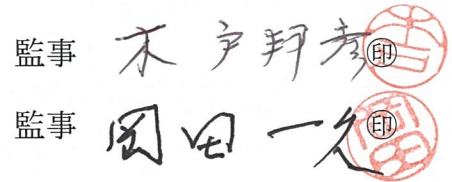 監事 木戸邦彦 ㊞
監事 岡田一久 ㊞